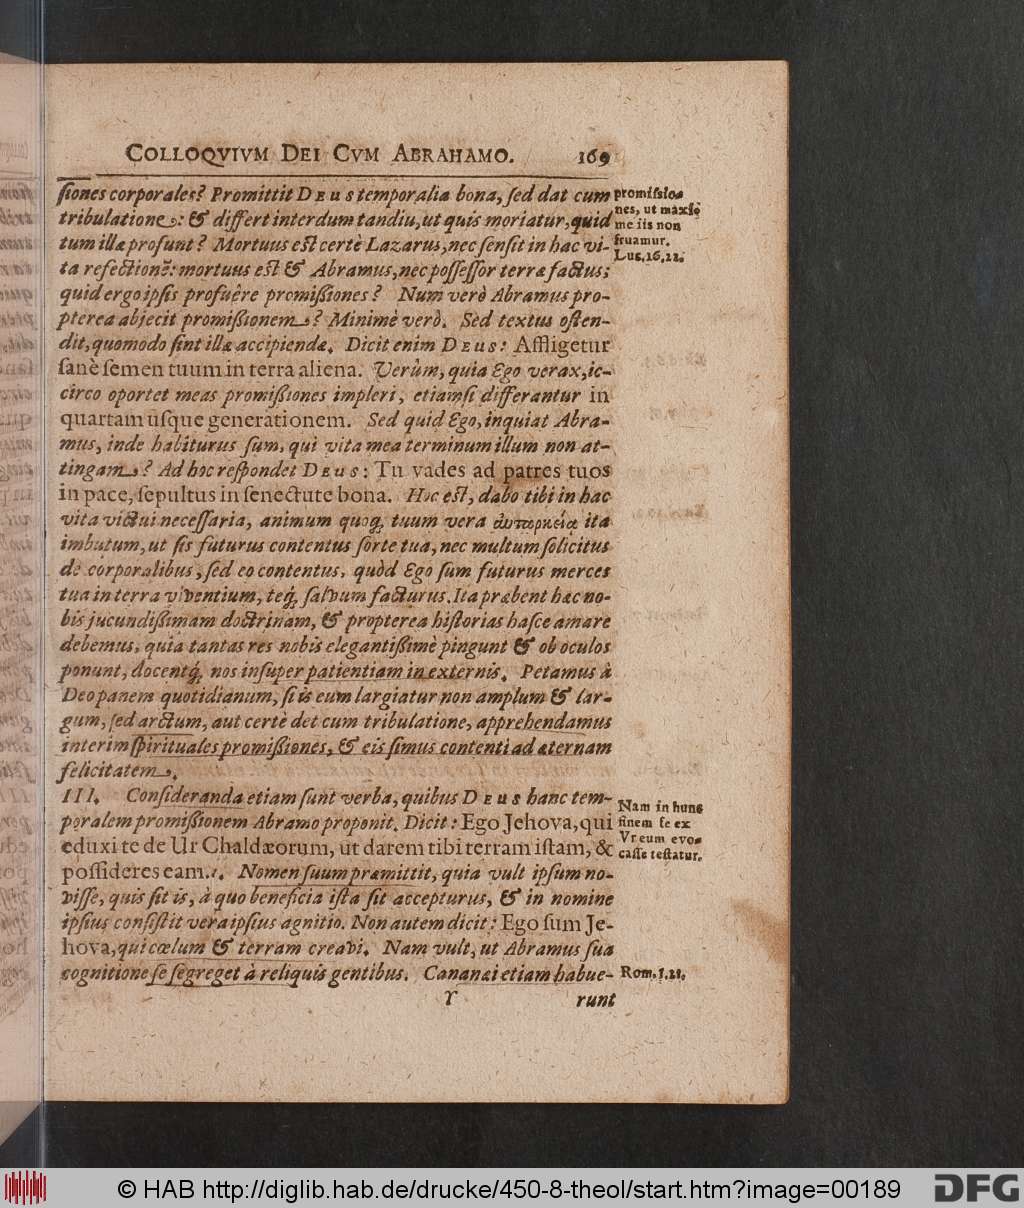 COLLOQVIVM DEI CVM ABRAHAMO. 169
ſiones corporales? Promittit DEUS temporalia bona, ſed dat cum
tribulatione: & differt interdum tandiu, ut quis moriatur, quid
tum illæ proſunt? Mortuus eſt certè Lazarus, nec ſenſit in hac vi-
ta refectionẽ: mortuus eſt & Abramus, nec poſſeſſor terræ factus;
quid ergo ipſis profuêre promißiones? Num verò Abramus pro-
pterea abjecit promißionem? Minimè verò. Sed textus oſten-
dit, quomodo ſint illæ accipiendæ. Dicit enim DEUS: Affligetur
ſanè ſemen tuum in terra aliena. Verùm, quia Ego verax, ic-
circo oportet meas promißiones impleri, etiamſi differantur in
quartam uſque generationem. Sed quid Ego, inquiat Abra-
mus, inde habiturus ſum, qui vita mea terminum illum non at-
tingam? Ad hoc reſpondet DEUS: Tu vades ad patres tuos
in pace, ſepultus in ſenectute bona. Hoc eſt, dabo tibi in hac
vita victui neceſſaria, animum quoq; tuum vera αὐταρκείᾳ ita
imbutum, ut ſis futurus contentus ſorte tua, nec multum ſolicitus
de corporalibus, ſed eo contentus, quòd Ego ſum futurus merces
tua in terra viventium, teq; ſalvum facturus. Ita præbent hæc no-
bis jucundißimam doctrinam, & propterea hiſtorias haſce amare
debemus, quia tantas res nobis elegantißimè pingunt & ob oculos
ponunt, docentq; nos inſuper patientiam in externis. Petamus à
Deo panem quotidianum, ſi is eum largiatur non amplum & lar-
gum, ſed arctum, aut certè det cum tribulatione, apprehendamus
interim ſpirituales promißiones, & eis ſimus contenti ad æternam
felicitatem.
III. Conſideranda etiam ſunt verba, quibus DEUS hanc tem-
poralem promißionem Abramo proponit. Dicit: Ego Jehova, qui
eduxi te de Ur Chaldæorum, ut darem tibi terram iſtam, &
poſſideres eam. Nomen ſuum præmittit, quia vult ipſum no-
viſſe, quis ſit is, à quo beneficia iſta ſit accepturus, & in nomine
ipſius conſiſtit vera ipſius agnitio. Non autem dicit: Ego ſum Je-
hova, qui cœlum & terram creavi. Nam vult, ut Abramus ſua
cognitione ſe ſegreget à reliquis gentibus. Cananæi etiam habue-
Y runt
promiſsio-
nes, ut maxi-
me iis non
fruamur.
Luc. 16, 22.
Nam in hunc
finem ſe ex
Vr eum evo-
caſſe teſtatur.
Rom. 1. 21.
© HAB http://diglib.hab.de/drucke/450-8-theol/start.htm?image=00189
DFG